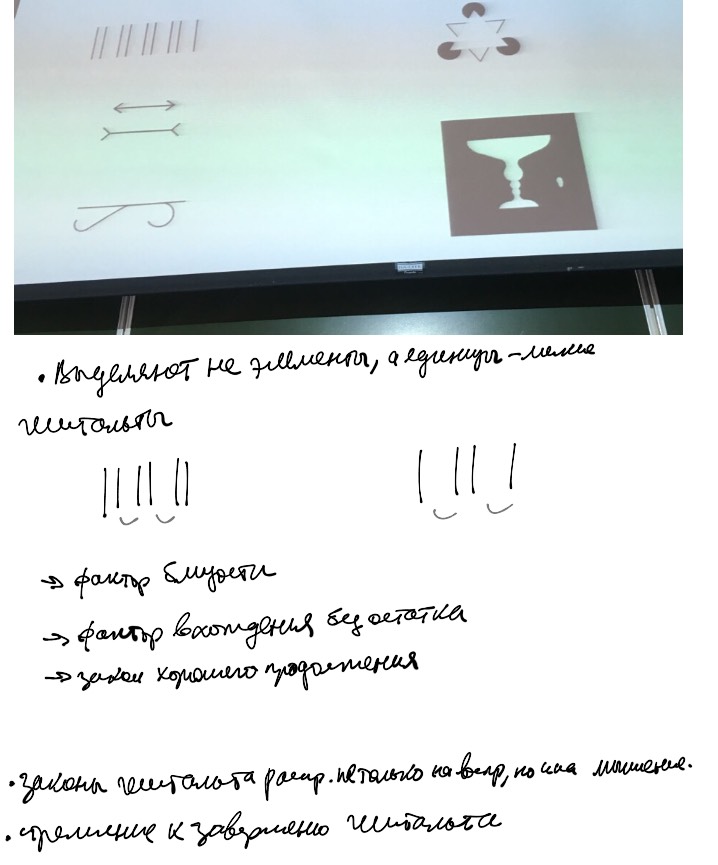 • Выделяют не элементы, а единицы – мелкие
гештальты
→ фактор близости
→ фактор вхождения без остатка
→ закон хорошего продолжения
• Законы гештальта распр. не только на воспр, но и на мышление.
• стремление к завершению гештальта